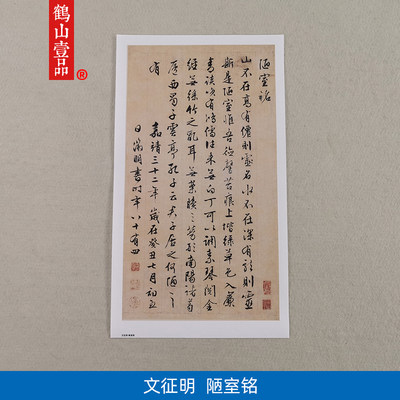 鹤山壹品®
陋室銘
山不在高有僊則名水不在深有龍則靈
斯是陋室惟吾德馨苔痕上階緑草色入簾
青談咲有鴻儒往来無白丁可以調素琴閱金
經無絲竹之亂耳無案牘之勞形南陽諸葛
廬西蜀子雲亭孔子云君子居之何陋之
有 嘉靖三十二年歲在癸丑七月初五
日徵明書時年八十有四
文征明 陋室铭